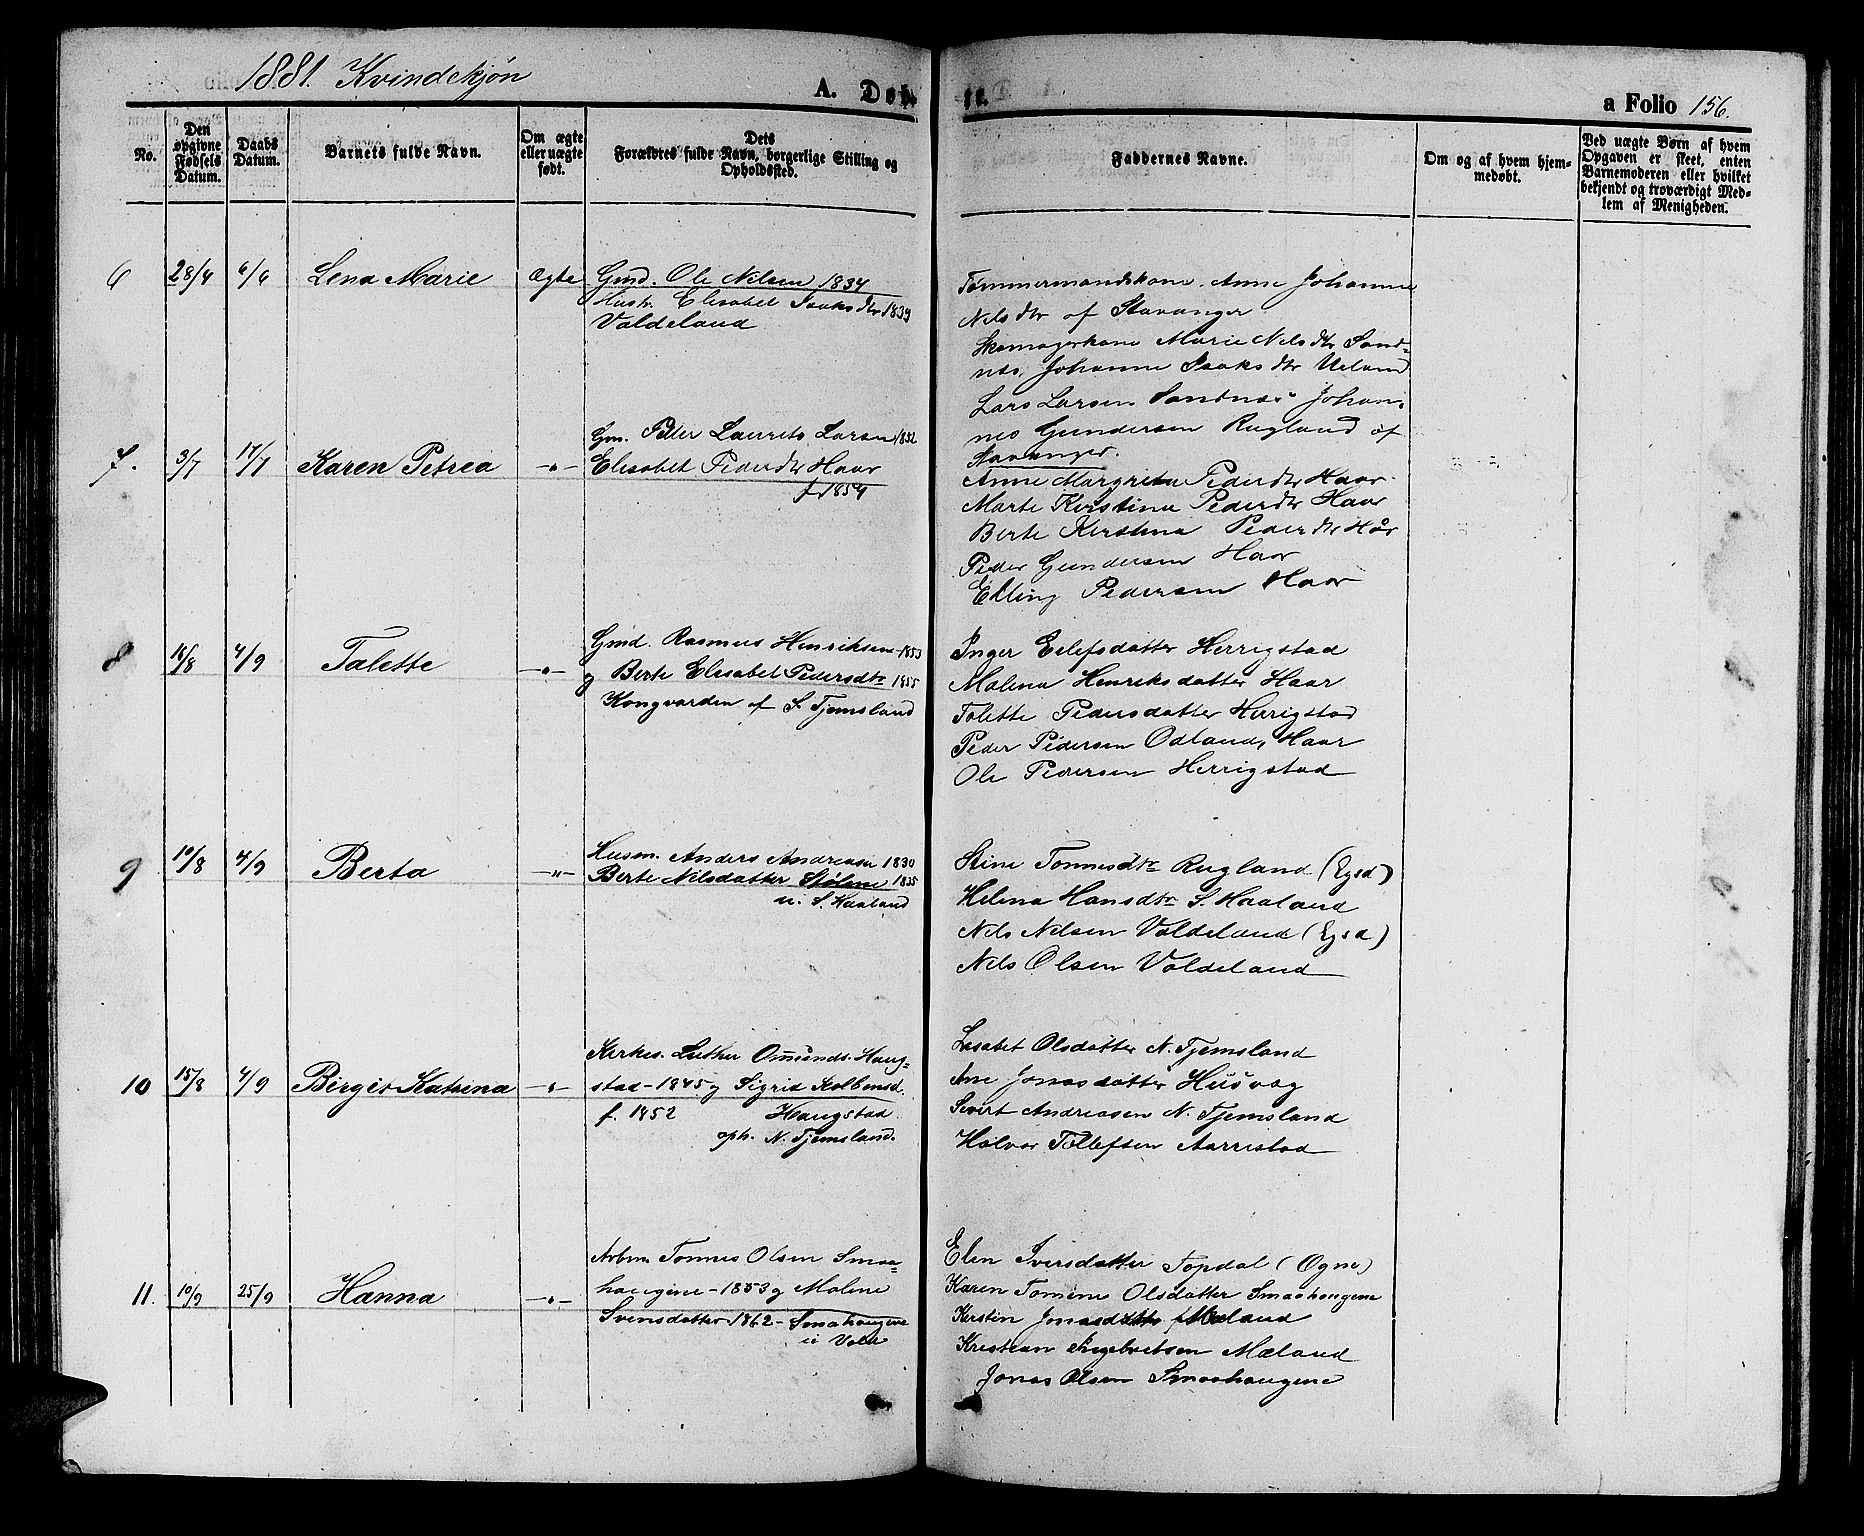 1881. Kvindekjøn
A. Døb
te.
a Folio 156.
No.
Den opgivne Fødsels Datum.
Daabs Datum.
Barnets fulde Navn.
Om ægte eller uægte født.
Dets Forældres fulde Navn, borgerlige Stilling og Opholdssted.
Faddernes Navne.
Om og af hvem hjemmedøbt.
Ved uægte Børn af hvem Opgaven er skeet, enten Barnemoderen eller hvilket bekjendt og troværdigt Medlem af Menigheden.
6 28/4 6/6 Lena Marie Ægte
Gmd. Ole Nilsen 1834
Hustr. Elisabet Isaksdtr 1839
Valdeland
Tømmermandskone Anne Johanne
Nilsdtr af Stavanger
Skomagerkone Marie Nilsdtr Sand=
nes, Johanne Isaksdtr Ueland
Lars Larsen Sandnes Johan=
nes Gundersen Rugland af
Stavanger.
7. 3/7 17/7 Karen Petrea -"-
Gm. Peder Laurits Larsen 1852
Elisabet Pedersdtr Haar
f. 1854
Anne Margreta Pedersdtr Haar
Marte Kerstina Pedersdtr Haar
Berte Kerstina Pedersdtr Hår
Peder Gundersen Haar
Elling Pedersen Haar
8 4/9 Talette -"-
Gmd. Rasmus Henriksen 1853
g Berte Elisabet Pedersdtr 1855
Kongvarden af S. Tjemsland
Inger Eilefsdatter Herrigstad
Malena Henriksdatter Haar
Talette Pedersdatter Herrigstad
Peder Pedersen Odland, Haar
Ole Pedersen Herrigstad
9 10/8 4/9 Berta -"-
Husm. Anders Andreasen 1830
Berte Nilsdatter Stølene 1835
u. S. Haaland
Stine Tonnesdtr Rugland (Egsd)
Helena Hansdtr S. Haaland
Nils Nilsen Valdeland (Egsd)
Nils Olsen Valdeland
10 15/8 4/9 Birgit Katrina -"-
Kirkes. Luther Omunds. Haug=
stad - 1845 g Sigrid Kolbensd.
f. 1852 Haugstad
oph. N. Tjemsland.
Lisabet Olsdatter N. Tjemsland
Ane Jonasdatter Husvæg
Sivert Andreasen N. Tjemsland
Halvor Tollefsen Aarrestad
11. 10/9 25/9 Hanna -"-
Arbm. Tonnes Olsen Smaa=
haugene - 1853 g Malene
Svensdatter 1862 - Smahaugene
u Valde
Elen Iversdatter Topdal (Ogne)
Karen Tomine Olsdatter Smaahaugene
Kerstin Jonasdatter Mæland
Kristean Ingebretsen Mæland
Jonas Olsen Smaahaugene